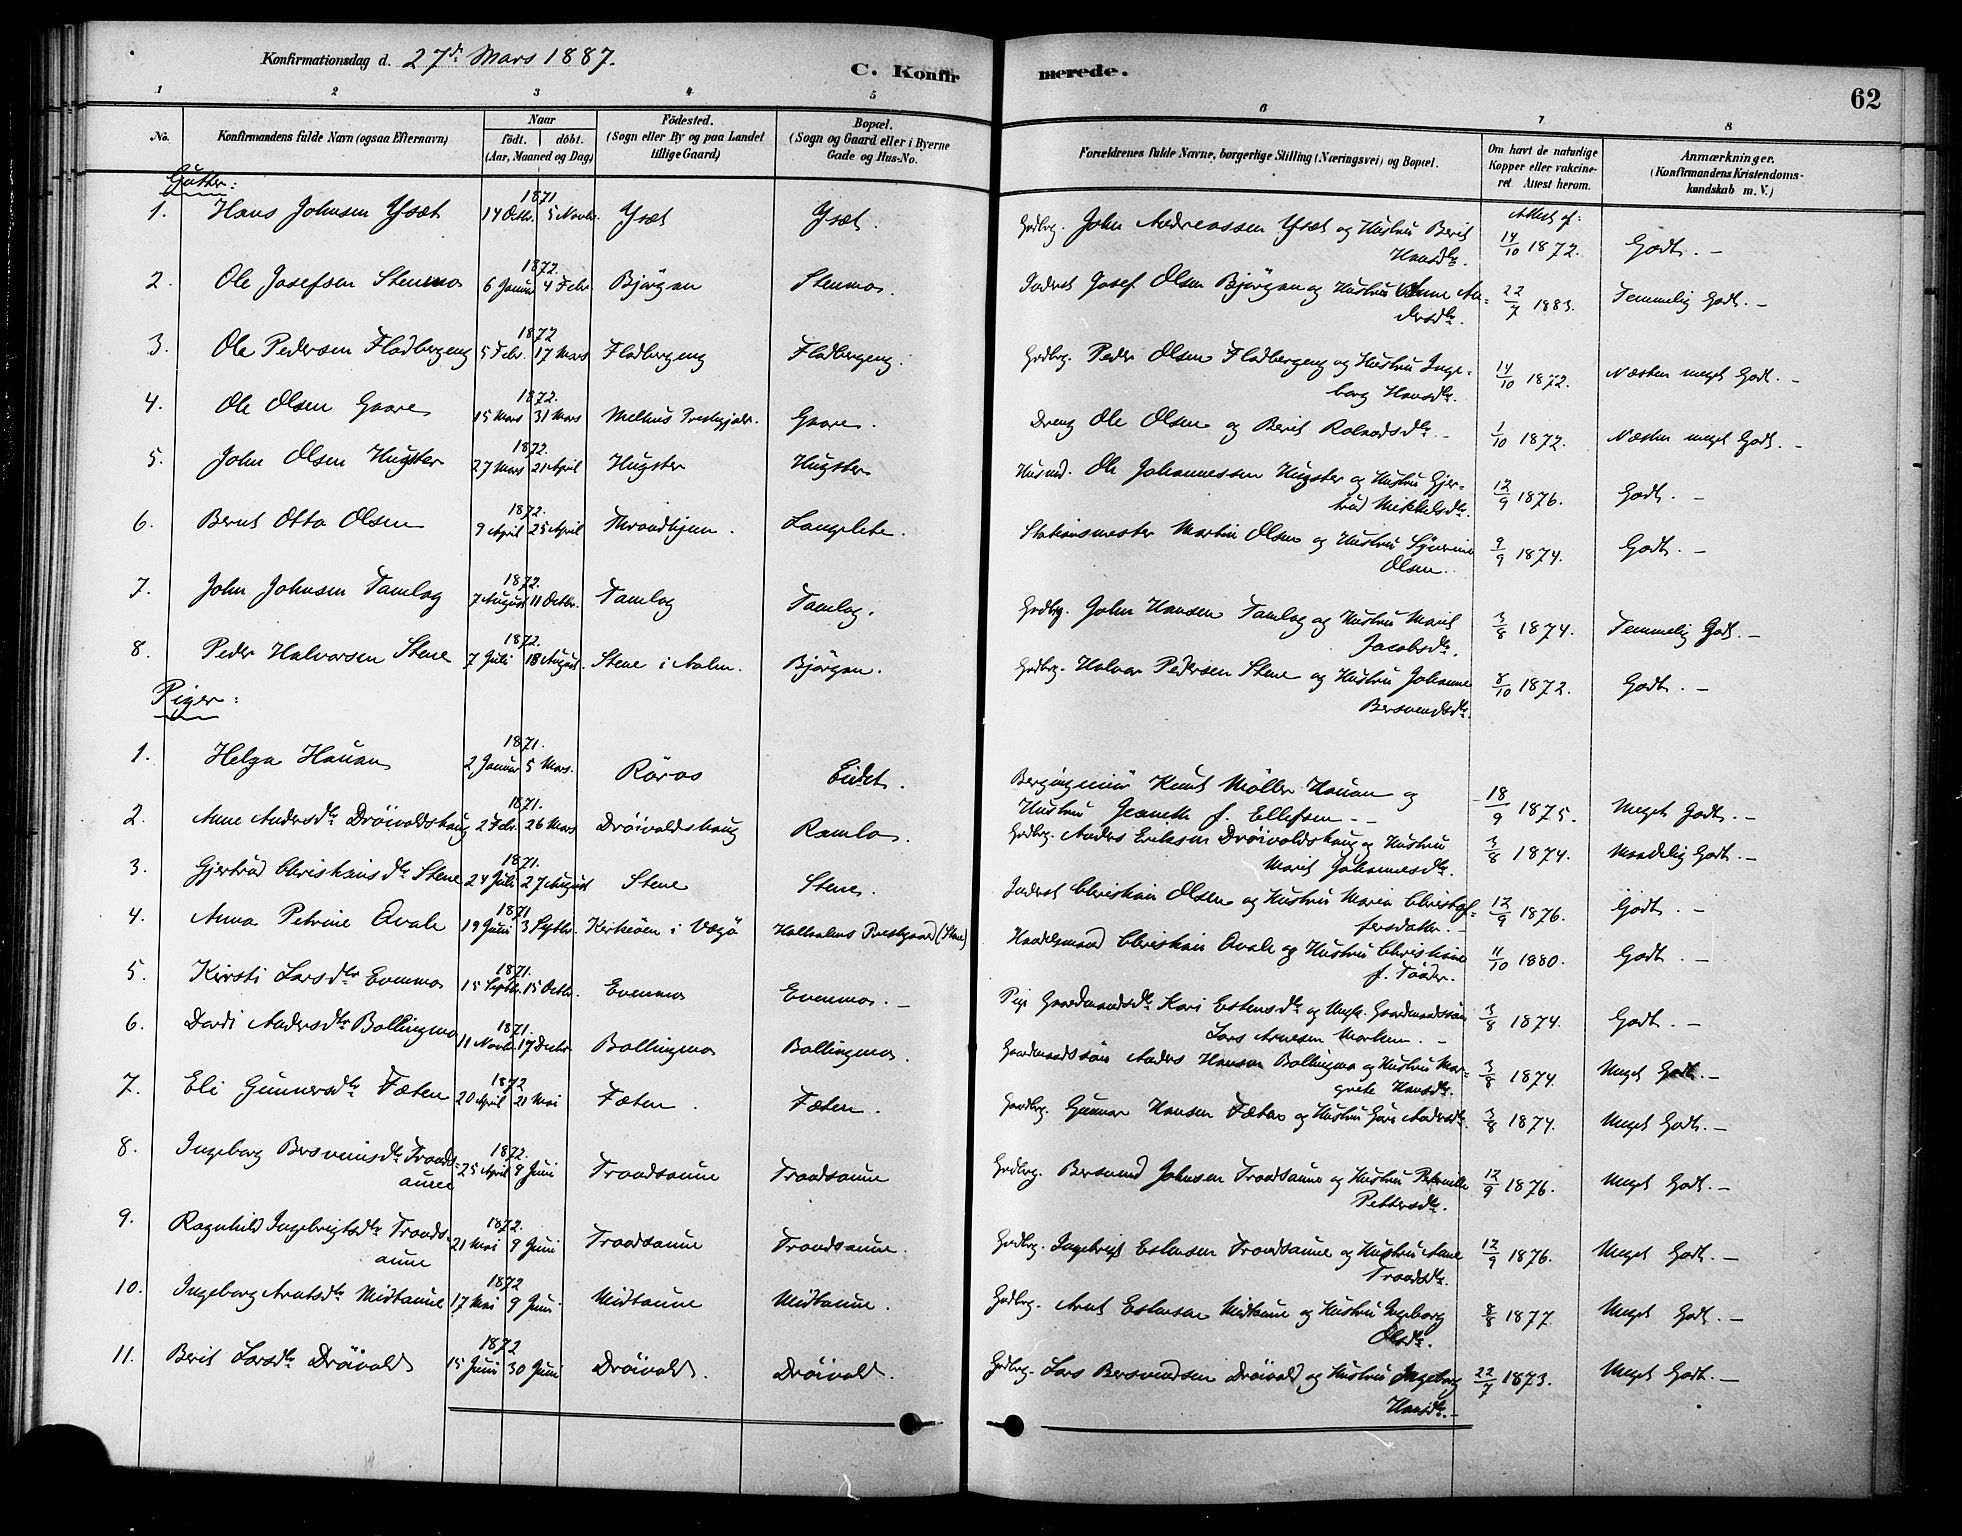 Konfirmationsdag d. 27de Mars 1887.
C. Konfirmerede.
62
1 2 3 4 5 6 7 8
No.
Konfirmandens fulde Navn (ogsaa Efternavn)
Naar
födt. döbt.
(Aar, Maaned og Dag)
Födested.
(Sogn eller By og paa Landet
tillige Gaard)
Bopæl.
(Sogn og Gaard eller i Byerne
Gade og Hus-No.
Forældrenes fulde Navne, borgerlige Stilling (Næringsvei) og Bopæl.
Om havt de naturlige
Kopper eller vakcine-
ret. Attest herom.
Anmærkninger.
(Konfirmandens Kristendoms-
kundskab m. V.)
Gutter:
Attest af:
1. Hans Johnsen Ysæt 1871 14 Octbr. 5 Novbr. Ysæt Ysæt. Gdbrg. John Andreassen Ysæt og Hustru Berit
Hansdtr. 14/10 1872. Godt. -
2. Ole Josefsen Stenmo 1872. 6 Januar 4 Febr. Björgan Stenmo. Inderst Josef Olsen Björgan og Hustru Anne An-
dersdtr. 22/7 1883. Temmelig Godt. -
3. Ole Pedersen Fladbergeng 1872 5 Febr. 17 Mars Fladbergeng Fladbergeng. Gdbrg. Peder Olsen Fladbergeng og Hustru Inge-
borg Hansdtr. 14/10 1872. Næsten meget Godt. -
4. Ole Olsen Gaare 1872. 15 Mars 31 Mars Melhus Prestegjæld. Gaare. Dreng Ole Olsen og Berit Roaldsdtr. - 1/10 1872. Næsten meget Godt. -
5. John Olsen Hugster 1872. 27 Mars 21 April Hugster Hugster Husmd. Ole Johannessen Hugster og Hustru Gjer-
trud Mikkelsdtr. 12/9 1876. Godt. -
6. Bernt Otto Olsen 1872. 9 April 25 April Throndhjem. Langlete. Stationsmester Martin Olsen og Hustru
Olsen. 9/9 1874. Godt. -
7. John Johnsen Tamlag 1872. 7 August 11 Octbr. Tamlag Tamlag. Gdbrg. John Hansen Tamlag og Hustru Marit
Jacobsdtr. 3/8 1874. Temmelig Godt. -
8. Peder Halvorsen Stene 1872. 7 Juli 18 August. Stene i Aalen. Björgan. Gdbrg. Halvor Pedersen Stene og Hustru Johanne
Bersvendsdtr. 8/10 1872. Godt. -
Piger:
1. Helga Hauan 1871. 2 Januar 5 Mars. Röros Eidet. Bergingeniör Knut Möller Hauan og
Hustru Jeanette f. Ellefsen. - 18/9 1875. Meget Godt. -
2. Anne Andersdtr. Dröivoldshaug 1871. 2 Febr. 26 Mars Dröivoldshaug Ramlo. Gdbrg. Anders Eriksen Dröivoldshaug og Hustru
Marit Johannesdtr. 3/8 1874. Maadelig Godt. -
3. Gjertrud Christiansdtr. Stene 1871. 24 Juli 27 August Stene Stene. Inderst Christian Olsen og Hustru Maria Christof-
fersdatter. - 12/9 1876. Godt. -
4. Anna Petrine Qvale 1871 19 Juni 3 Septbr. Kirkeöen i Vægö Holtaalens Prestgaard (Stene) Handelsmand Christian Qvale og Hustru Christiane
f. 11/10 1880. Godt. -
5. Kirsti Larsdtr. Evenmo 1871. 15 Septbr. 15 Octbr. Evenmo Evenmo. - Pige Gaardmandsdtr. Kari Estensdtr. og Ungk. Gaardmandssön
Lars Arnesen Morken. - 3/8 1874. Godt. -
6. Dordi Andersdtr. Bollingmo 1871. 11 Novbr. 17 Decbr. Bollingmo Bollingmo. Gaardmandssön Anders Hansen Bollingmo og Hustru Mar-
grete Hansdtr. 3/8 1874. Meget Godt. -
7. Eli Gunnarsdtr. Fæten 1872 20 April 21 Mai Fæten. Fæten. Gaardbrg. Gunnar Hansen Fæten og Hustru Guri Andersdtr. 3/8 1874. Meget Godt. -
8. Ingeborg Bersvensdtr. Tronds-
aune 1872. 25 April 8 Juni Trondsaune Trondsaune Gdbrg. Bersvend Johnsen Trondsaune og Hustru Petronille
Pettersdtr. 12/9 1876. Meget Godt. -
9. Ragnhild Ingebrigtsdtr. Tronds-
aune 1872. 21 Mai 9 Juni Trondsaune Trondsaune. Gdbrg. Ingebrigt Estensen Trondsaune og Hustru Anne
Trondsdtr. 12/9 1876. Meget Godt. -
10. Ingeborg Arntsdtr. Midtaune 1872 17 Mai 9 Juni Midtaune Midtaune. Gdbrg. Arnt Estensen Midtaune og Hustru Ingeborg
Olsdtr. 8/8 1877. Meget Godt. -
11. Berit Larsdtr. Dröivold 1872 15 Juni 30 Juni Dröivold. Dröivold. Gdbrg. Lars Bersvendsen Dröivold og Hustru Ingebrg
Hansdtr. - 22/7 1873. Meget Godt. -